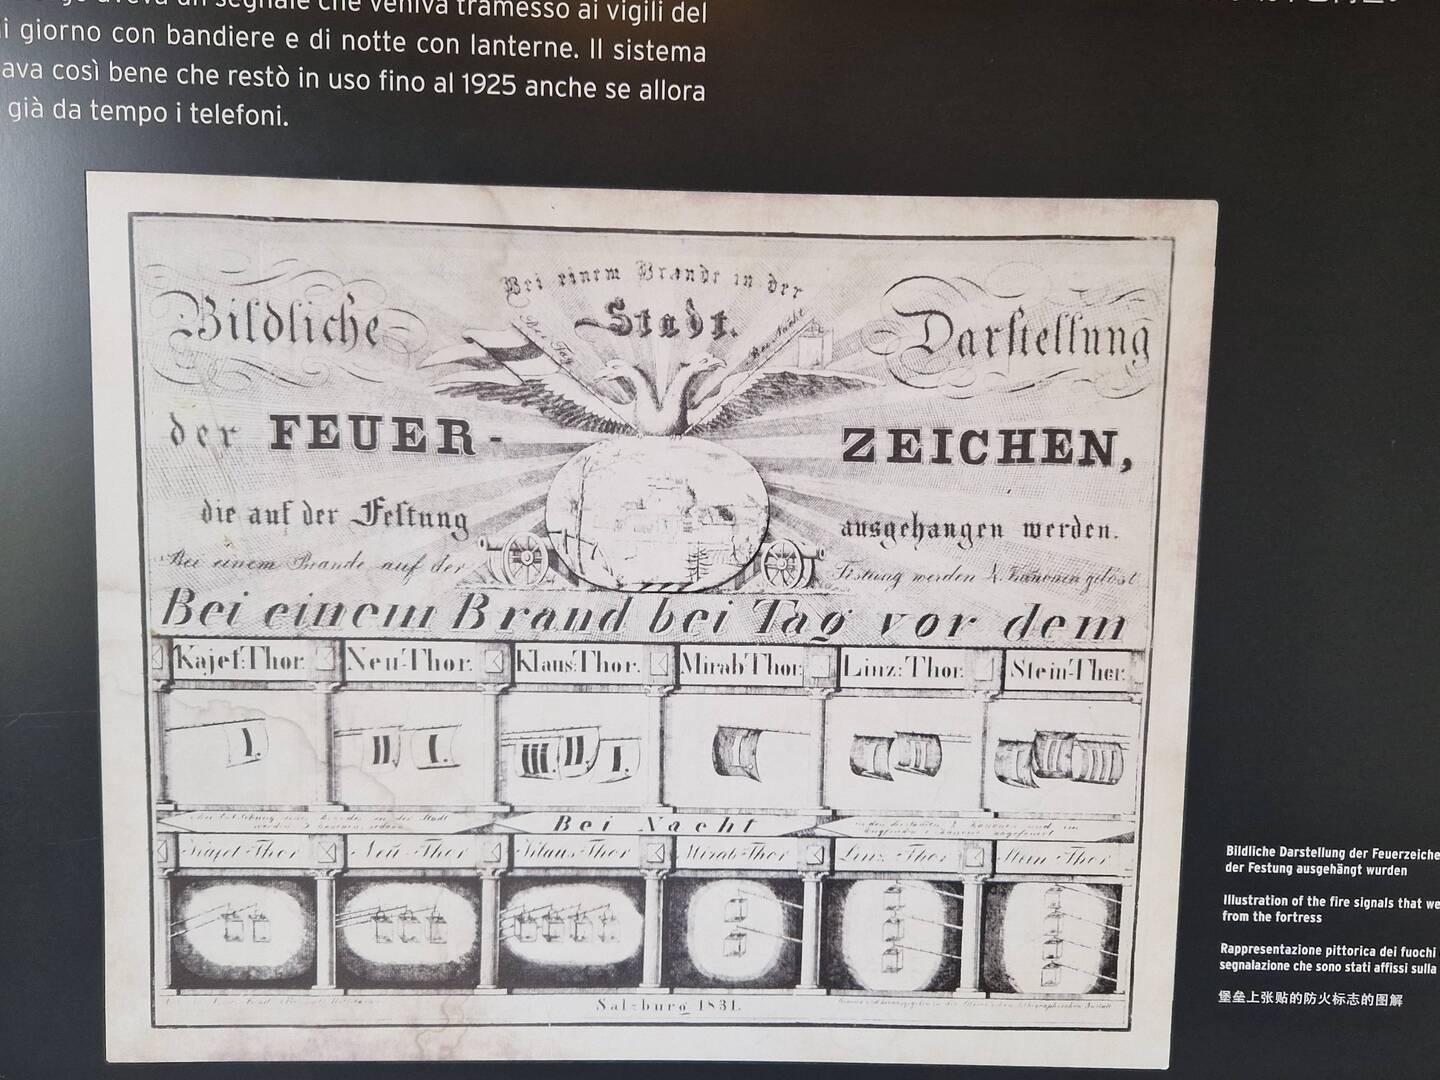 aveva un segnale che veniva tramesso ai vigili del
giorno con bandiere e di notte con lanterne. Il sistema
ava così bene che restò in uso fino al 1925 anche se allora
già da tempo i telefoni.
Bei einem Brande in der
Stadt.
Bei Tag
Bei Nacht
Bildliche Darstellung
der FEUER- ZEICHEN,
die auf der Festung ausgehangen werden.
Bei einem Brande auf der Festung werden 4. Kanonen gelöst
Bei einem Brand bei Tag vor dem
Kajet:Thor. Neu-Thor. Klaus:Thor. Mirab:Thor: Linz: Thor. Stein-Thor.
I. II I. III II I.
Bei Nacht
Kajet-Thor Neu-Thor Klaus-Thor Mirab-Thor Linz-Thor Stein-Thor
Salzburg 1831.
Bildliche Darstellung der Feuerzeiche
der Festung ausgehängt wurden
Illustration of the fire signals that we
from the fortress
Rappresentazione pittorica dei fuochi
segnalazione che sono stati affissi sulla
堡垒上张贴的防火标志的图解